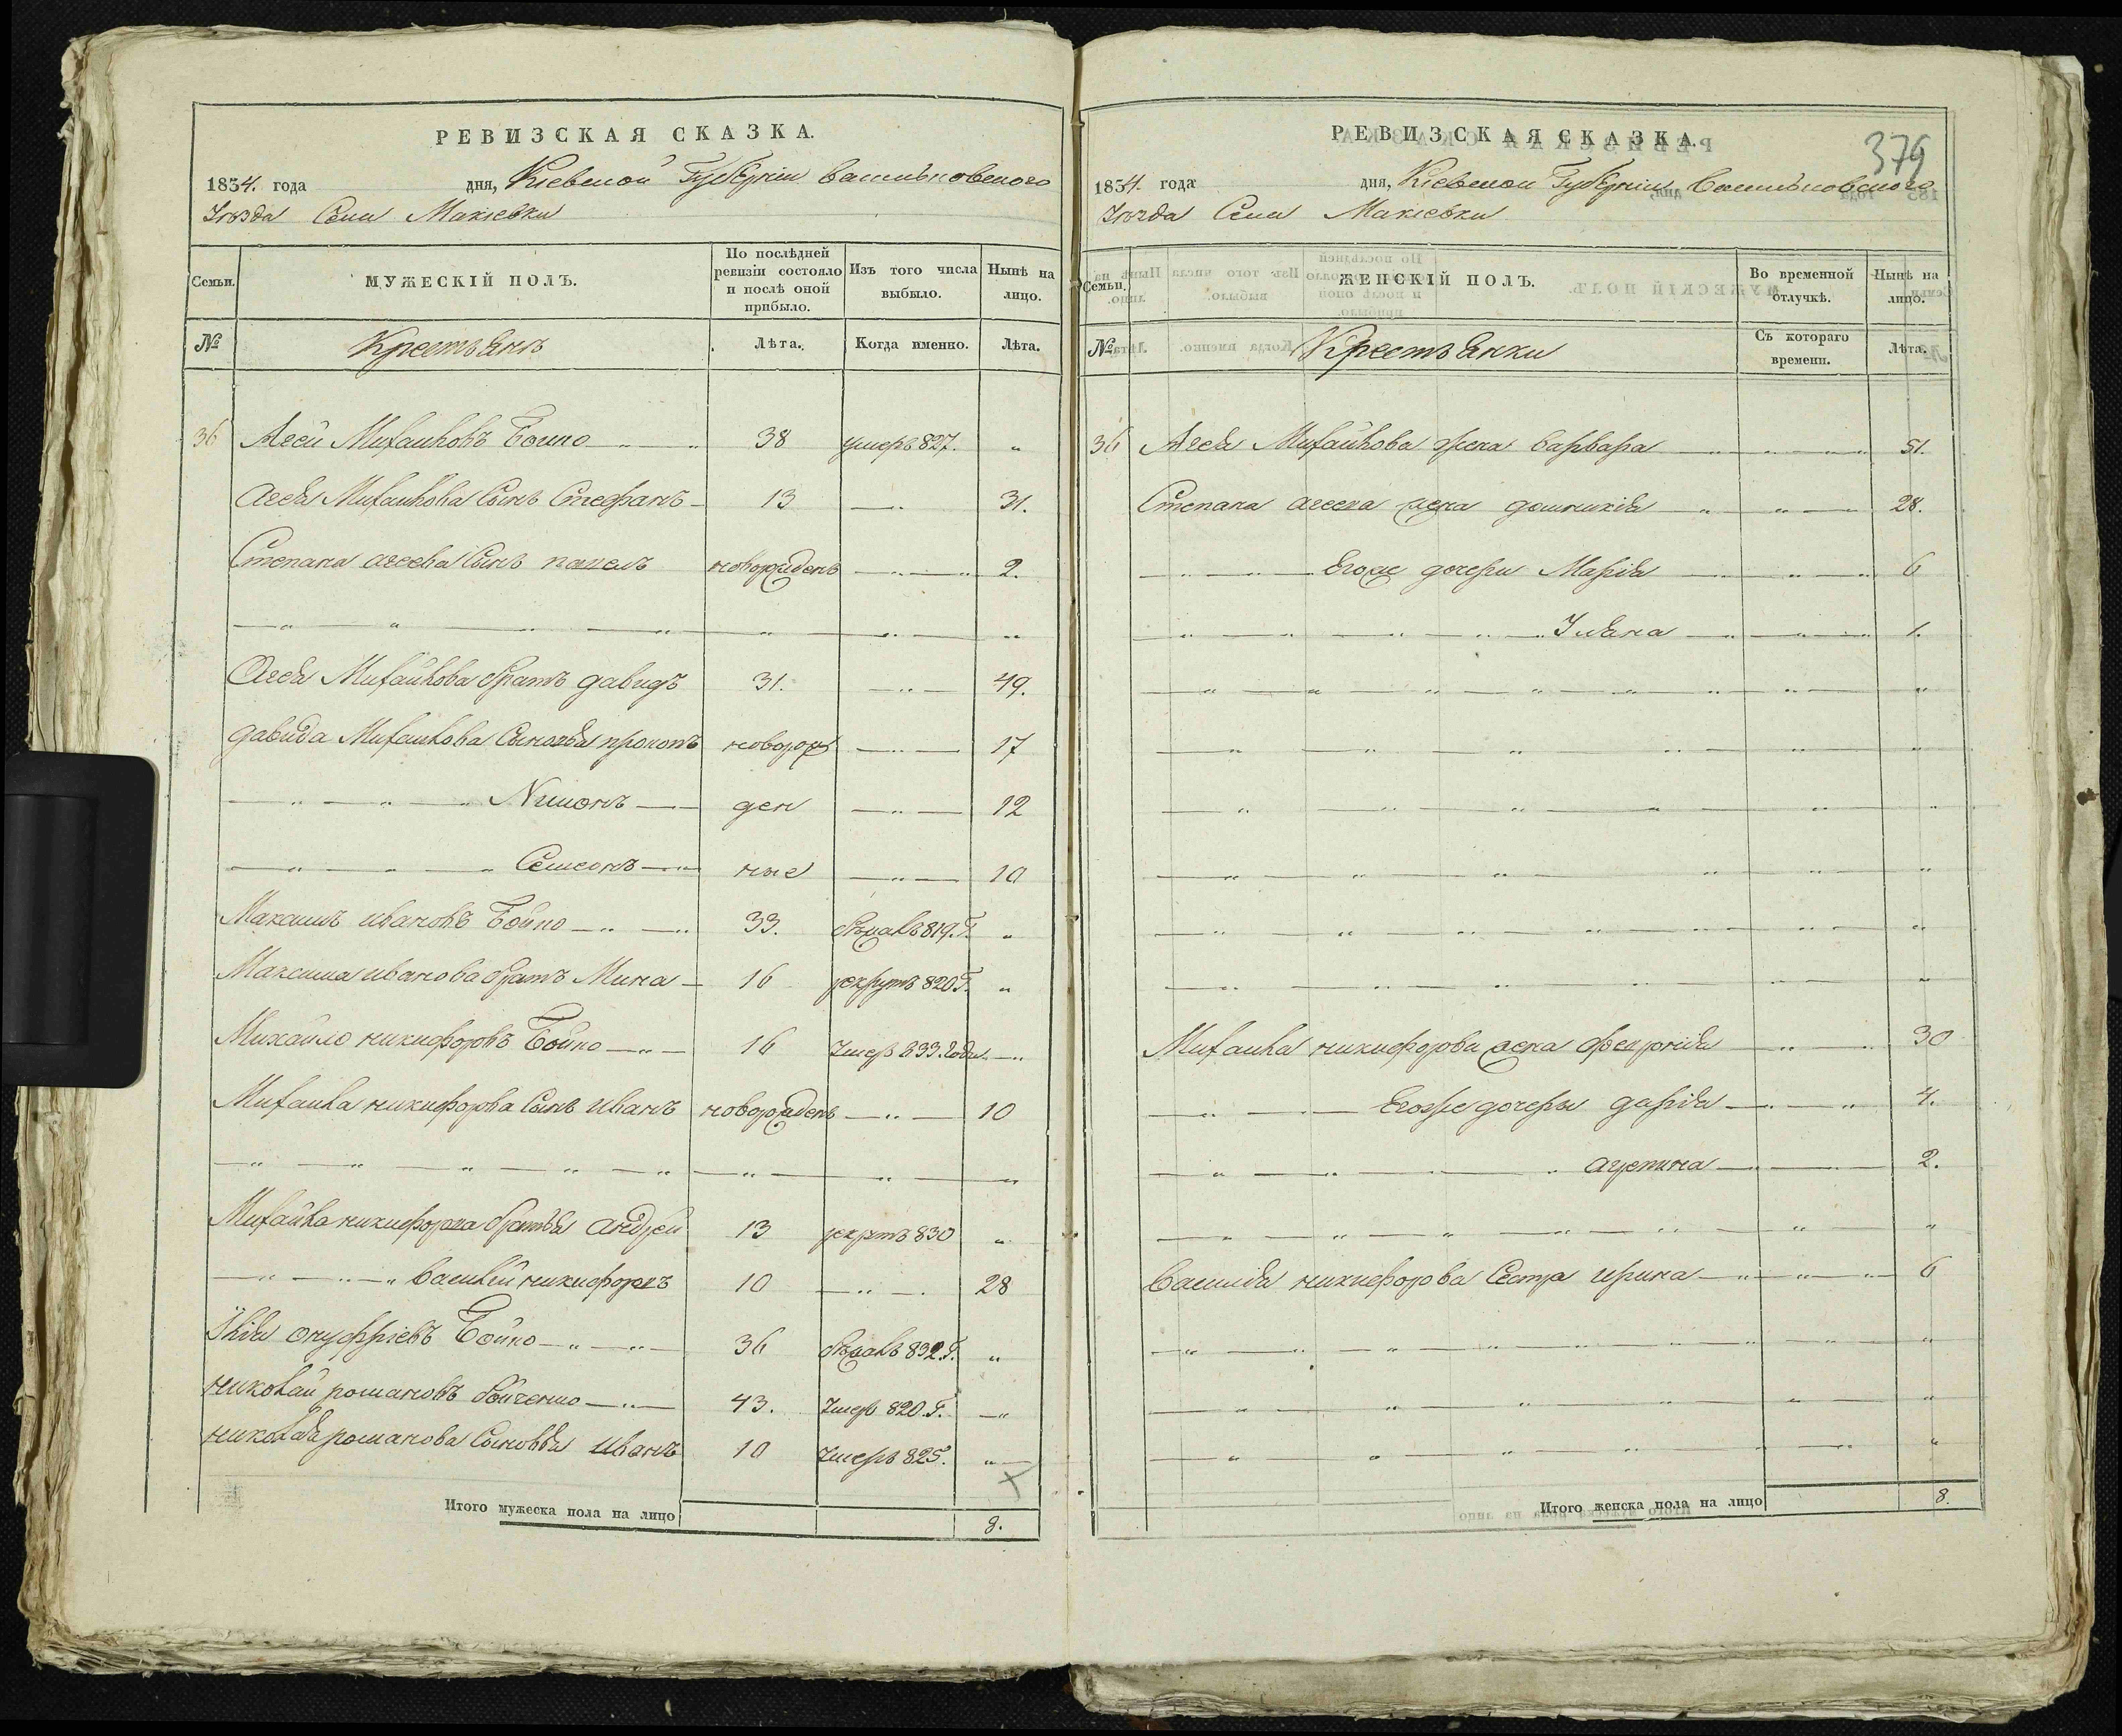 РЕВИЗСКАЯ СКАЗКА.
1834. года дня, Кіевской Губерніи Васильковского
Уѣзда Села Макіевки
Семьи. МУЖЕСКІЙ ПОЛЪ. По послѣдней ревизіи состояло и послѣ оной прибыло. Изъ того числа выбыло. Нынѣ на лицо.
№ Крестьянъ Лѣта. Когда именно. Лѣта.
36 Агей Михайловъ Бойко 38 умеръ 827. "
Агея Михайлова Сынъ Стефанъ 13 31.
Степана агеева Сынъ павелъ новорожденъ 2.
Агея Михайлова братъ давидъ 31. 49.
давида Михайлова Сыновья прокопъ новорож 17
Химонъ ден 12
Семеонъ ные 10
Максимъ ивановъ Бойко 33. бѣжалъ 819. Г. "
Максима иванова братъ Мина 16 рекрутъ 820 Г. "
Михайло никифоровъ Бойко 16 Умеръ 833. Года.
Михайла никифорова Сынъ иванъ новорожденъ 10
Михайла никифорова братья андрей 13 рекрутъ 830 "
василій никифоровъ 10 28
онуфріевъ Бойко 36 бѣжалъ 832. Г. "
николай романовъ бойченко 43. Умеръ 820. Г. "
николая романова Сыновья иванъ 10 Умеръ 825. "
Итого мужеска пола на лицо 8.
РЕВИЗСКАЯ СКАЗКА.
379
1834. года дня, Кіевской Губерніи Васильковского
Уѣзда Села Макіевки
Семьи. ЖЕНСКІЙ ПОЛЪ. Во временной отлучкѣ. Нынѣ на лицо.
№ Крестьянки Съ котораго времени. Лѣта.
36 Агея Михайлова жена варвара 51.
Степана агеева жена домникія 28.
Егоже дочери Марія 6
Уліана 1.
Михайла никифорова жена февронія 30
Егоже дочеры дарія 4.
агрепина 2.
Василія никифорова Сестра ирина 6
Итого женска пола на лицо 8.